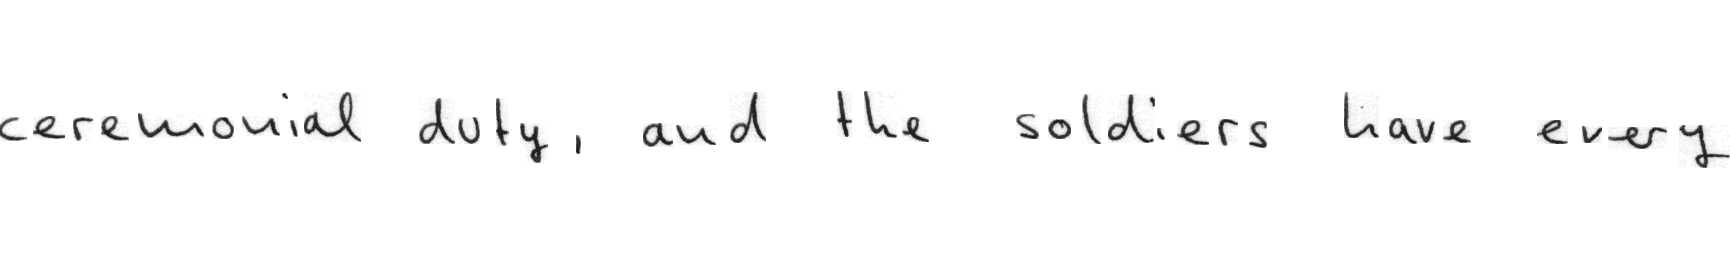 ceremonial duty, and the soldiers have every